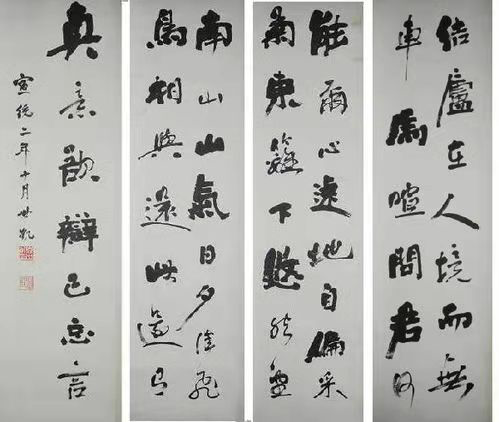 結廬在人境而無
車馬喧問君何
能爾心遠地自偏采
菊東籬下悠然
南山山氣日夕佳飛
鳥相與還此還有
真意欲辯已忘言
宣統二年十月世凱